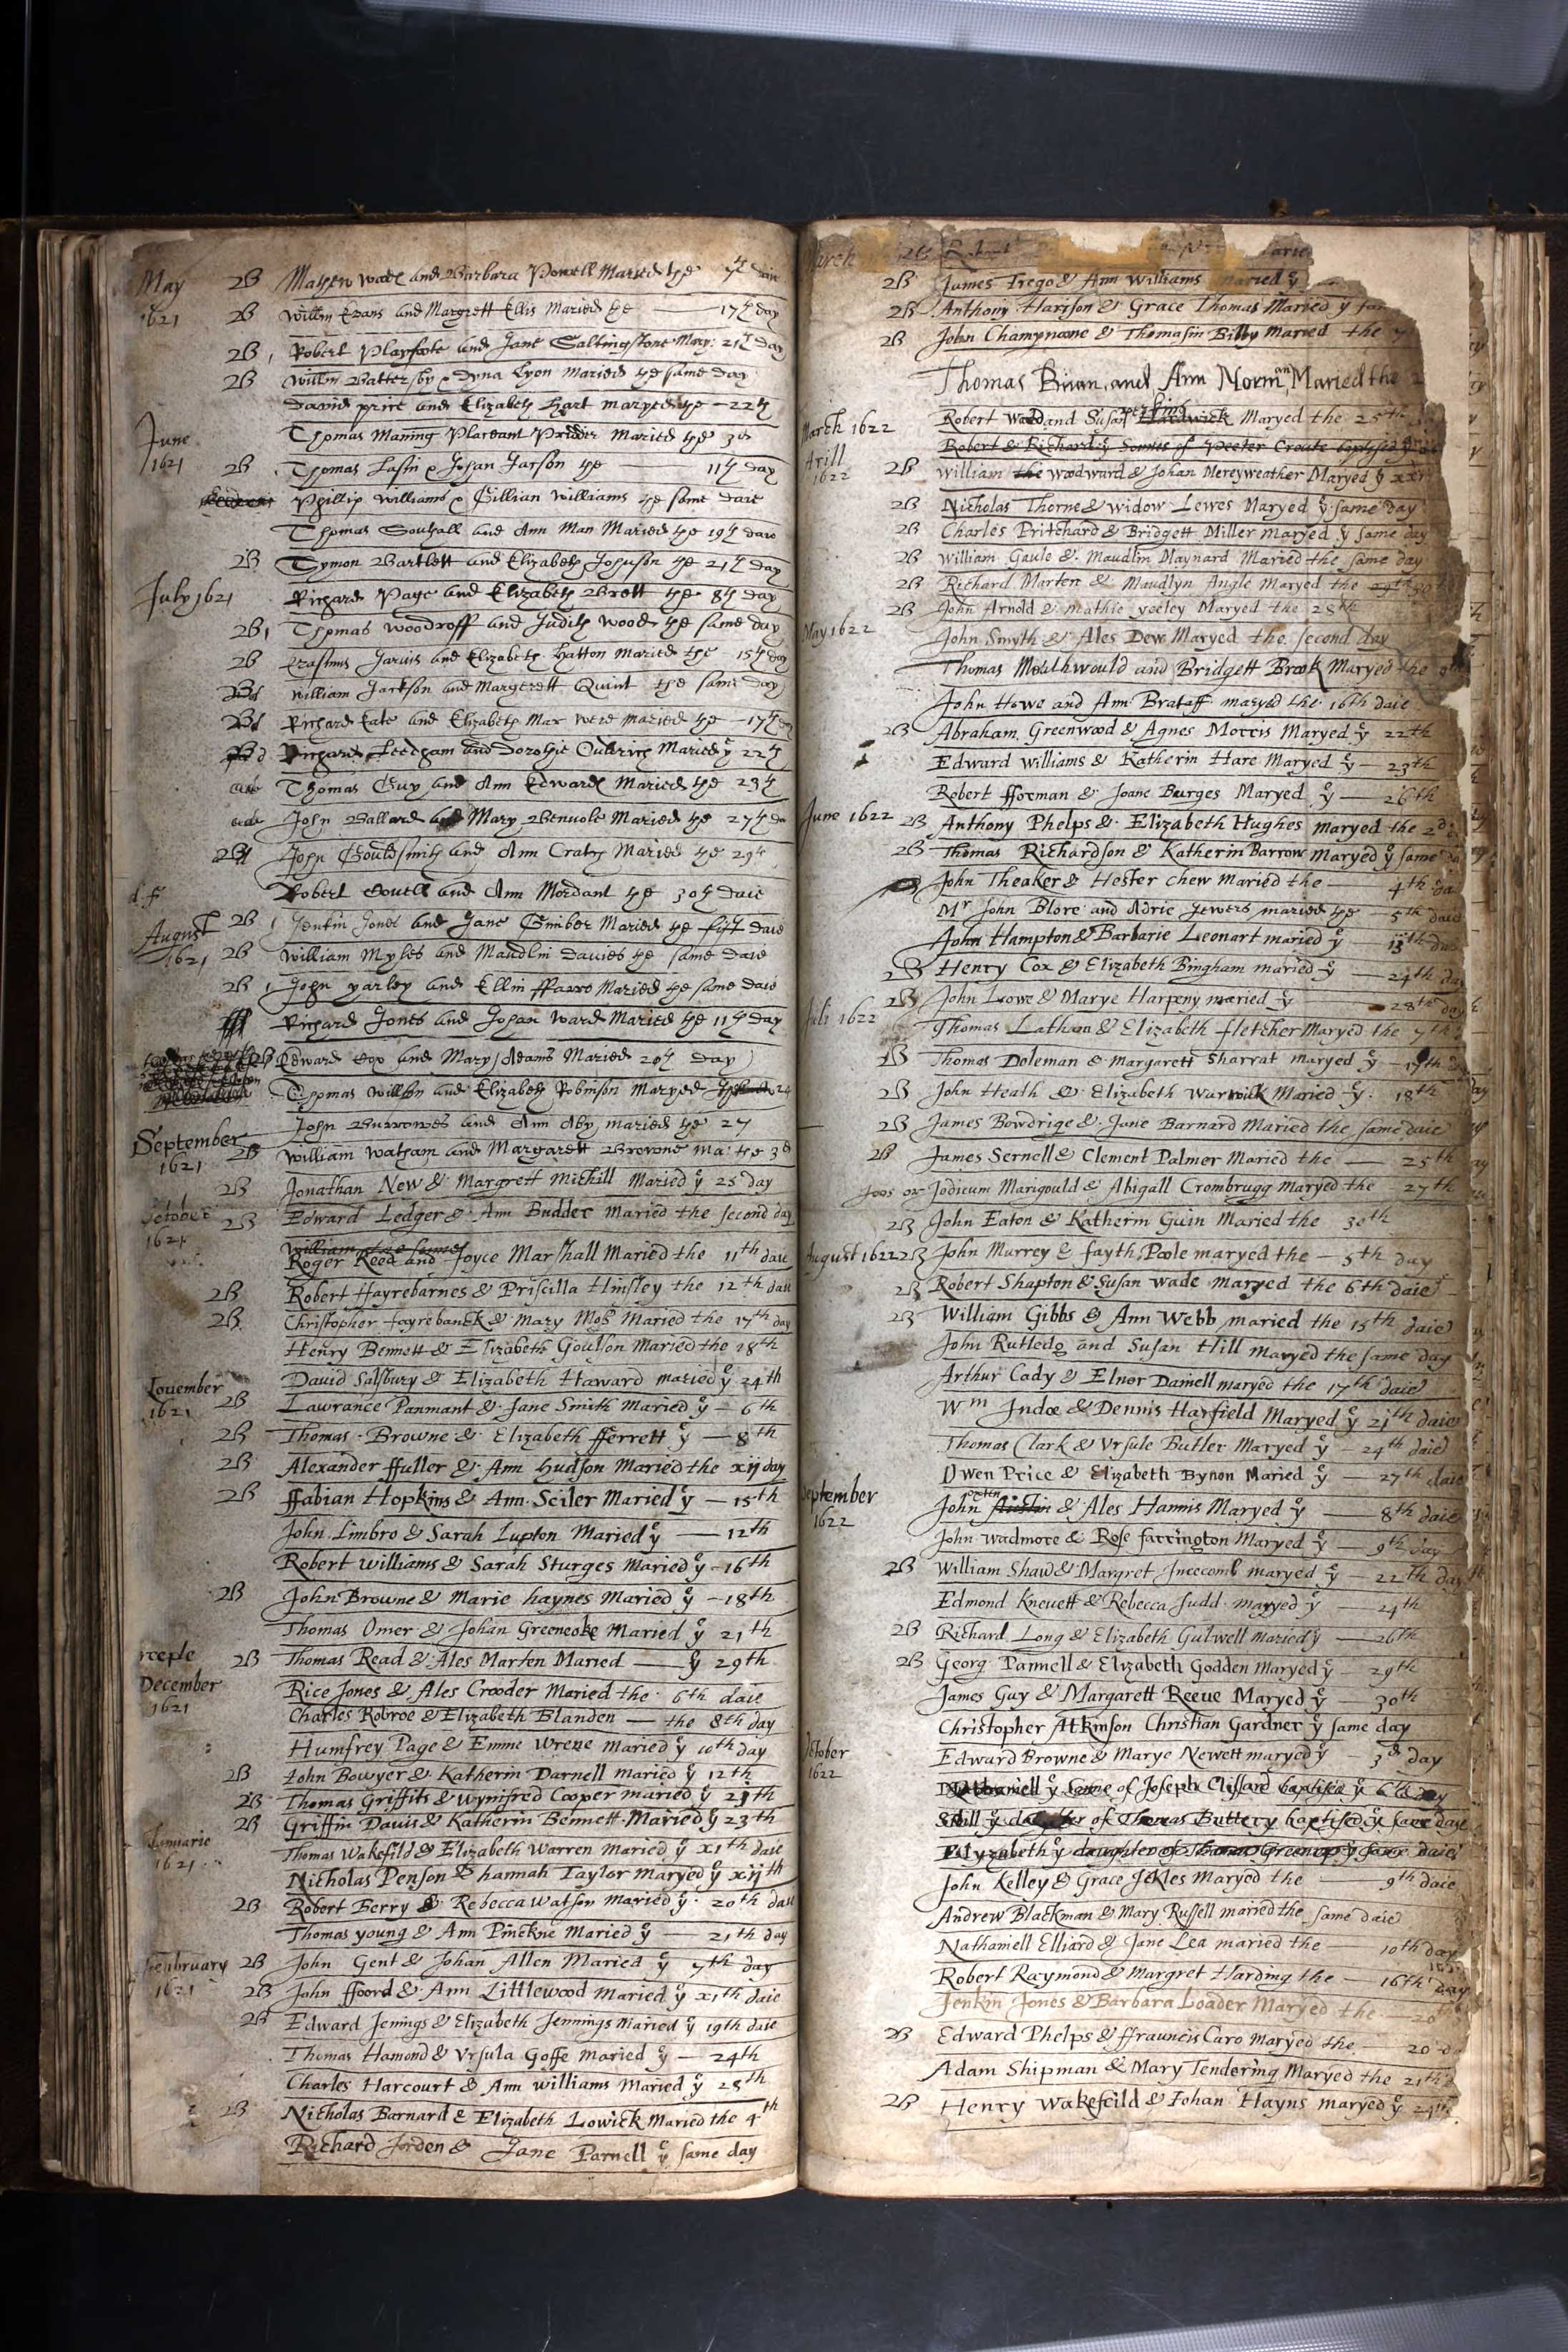 May 2B Mathew Wade and Barbara Powell Maried the 7th daie
1621 2B Willm Evans and Margrett Ellis Maried the 17th day
2B Robert Playfoote and Jane Saltingstone Mary: 21th day
2B Willm Battersby & Dyna Lyon Maried the same day
David price and Elizabeth Hart maryed the 22th
June Thomas Maning Maried the 3d
1621 2B Thomas and Johan Jarson the 11th day
Phillip Williams & Gillian Williams the same daie
Thomas Southall and Ann Man Maried the 19th daie
2B Symon Bartlett and Elizabeth Johnson the 21th day
July 1621 Richard Page and Elizabeth Brett the 8th day
2B Thomas Woodroff and Judith Wood the same day
2B Erasmus Jarvis and Elizabeth Hatton Maried the 15th day
William Jackson and Margerett Quint the same day
Richard Kate and Elizabeth Max were maried the 17th day
Richard Leedham and Dorothie Maried ye 22th
Thomas Guy and Ann Edwards Maried the 23th
John Ballard and Mary Benvole Maried the 27th da
John Gouldsmith and Ann Maried the 29th
Robert and Ann Mordant the 30th daie
August 2B Jenkin Jones and Jane Maried the first daie
1621 2B William Myles and Maudlin Davies the same daie
2B John yarley and Ellin ffarro Maried the same daie
Richard Jones and Johan Ward Maried the 11th day
2B Edward Cox and Mary Adams Maried 20th day
Thomas Willson and Elizabeth Robinson Maryed 24
John Burrowes and Ann Aby maried the 27
September
1621 2B William Watham and Margarett Browne ma: the 3d
2B Jonathan New & Margrett Michill Maried ye 25 day
October 2B Edward Ledger & Ann Budder Maried the second day
1621 Roger Reed and Joyce Marshall Maried the 11th daie
2B Robert Hayrebarnes & Priscilla Hinsley the 12th daie
2B Christopher fayrebanck & Mary Maried the 17th day
Henry Bennett & Elizabeth Goulson Maried the 18th
David Salsbury & Elizabeth Haward maried ye 24th
November
1621 2B Lawrance Panmant & Jane Smith Maried ye 6th
2B Thomas Browne & Elizabeth fferrett ye 8th
2B Alexander ffuller & Ann Hudson Maried the xij day
2B ffabian Hopkins & Ann Seiler Maried ye 15th
John Limbro & Sarah Lupton Maried ye 12th
Robert Williams & Sarah Sturges Maried ye 16th
2B John Browne & Marie haynes Maried ye 18th
Thomas Omer & Johan Greeneoke Maried ye 21th
2B Thomas Read & Ales Marten Maried ye 29th
December Rice Jones & Ales Crooder Maried the 6th daie
1621 Charles Robroe & Elizabeth Blanden the 8th day
Humfrey Page & Emme Wrene maried ye 10th day
2B John Bowyer & Katherin Darnell maried ye 12th
2B Thomas Griffits & Wynifred Cooper maried ye 21th
2B Griffin Davis & Katherin Bennett Maried ye 23th
Januarie Thomas Wakefild & Elizabeth Warren maried ye x1th daie
1621 Nicholas Penson & hannah Taylor Maryed ye xijth
2B Robert Berry & Rebecca Watson Maried ye 20th daie
Thomas young & Ann Pinckne Maried ye 21th day
February 2B John Gent & Johan Allen Maried ye 7th day
1621 2B John ffoord & Ann Littlewood Maried ye x1th daie
2B Edward Jenings & Elizabeth Jennings Maried ye 19th daie
Thomas Hamond & Vrsula Goffe maried ye 24th
Charles Harcourt & Ann Williams Maried ye 28th
2B Nicholas Barnard & Elizabeth Lowick Maried the 4th
Richard Jorden & Jane Parnell ye same day
March 2B
2B James Trego & Ann Williams maried ye
2B Anthony Harison & Grace Thomas Maried ye sa
2B John Champnoone & Thomasin Bibby Maried the
Thomas and Ann Norman Maried the 2
March 1622 Robert Wood and Susan Perkins Hardwick Maryed the 25th
Robert & Richard ye Sonnes of Peeter Croate baptised
Aprill
1622 2B William the Woodward & Johan Mereyweather Maryed ye
2B Nicholas Thorne & widow Lewes Maryed ye same day
2B Charles Pritchard & Bridgett Miller maryed ye same day
2B William Gaule & Maudlin Maynard Maried the same day
2B Richard Marten & Maudlyn Angle Maryed the
2B John Arnold & Mathie veeley Maryed the 28th
May 1622 John Smyth & Ales Dew Maryed the second day
Thomas Mouthwould and Bridgett Brook Maryed the
John Howe and Ann Brataff maryed the 16th daie
2B Abraham Greenwood & Agnes Morris Maryed ye 22th
Edward Williams & Katherin Hare Maryed ye 23th
Robert fforman & Joane Burges Maryed ye 26th
June 1622 2B Anthony Phelps & Elizabeth Hughes maryed the 2d
2B Thomas Richardson & Katherin Barrow maryed ye same da
John Theaker & Hester Chew Maried the 4th da
Mr John Blore and Adrie Jewers maried the 5th daie
John Hampton & Barbarie Leonart maried ye 13th daie
2B Henry Cox & Elizabeth Bingham maried ye 24th day
2B John Lowe & Marye Harpeny maried ye 28th day
Juli 1622 Thomas Lathun & Elizabeth fletcher Maryed the 7th
2B Thomas Doleman & Margarett Sharrat maryed ye 17th day
2B John Heath & Elizabeth Warwick Maried ye 18th
2B James Bowdrige & Jane Barnard Maried the same daie
2B James Sernell & Clement Palmer Maried the 25th
Joos or Jodicum Marigould & Abigall Crombrugg Maryed the 27th
2B John Eaton & Katherin Guin Maried the 30th
August 1622 2B John Murrey & fayth Poole maryed the 5th day
2B Robert Shapton & Susan Wade maryed the 6th daie
2B William Gibbs & Ann Webb maried the 15th daie
John Rutledg and Susan Hill maryed the same day
Arthur Cady & Elner Darnell maryed the 17th daie
Wm Indoe & Dennis Harfield Maryed ye 21th daie
Thomas Clark & Vrsule Butler Maryed ye 24th daie
Owen Price & Elizabeth Bynon Maried ye 27th daie
September
1622 John & Ales Hannis Maryed ye 8th daie
John Wadmore & Rose farrington Maryed ye 9th day
2B William Shaw & Margret Incecomb maryed ye 22th day
Edmond Knevett & Rebecca Judd maryed ye 24th
2B Richard Long & Elizabeth Gulwell maried ye 26th
2B Georg Pannell & Elizabeth Godden Maryed ye 29th
James Guy & Margarett Reeve Maryed ye 30th
Christopher Atkinson Christian Gardner ye same day
October Edward Browne & Marye Newett maryed ye 3d day
1622 Nathaniell ye Sonne of Joseph Clifford baptised ye 6th day
Sibill ye daughter of Thomas Buttery baptised ye same daie
Elyzabeth ye daughter of Thomas Greenop ye same daie
John Kelley & Grace Jekles Maryed the 9th daie
Andrew Blackman & Mary Russell maried the same daie
Nathaniell Elliard & Jane Lea maried the 10th day
Robert Raymond & Margret Harding the 16th day
Jenkin Jones & Barbara Loader Maryed the 20th
2B Edward Phelps & ffrauncis Caro maryed the 20 da
Adam Shipman & Mary Tendering Maryed the 21th
2B Henry Wakefeild & Johan Hayns maryed ye 24th